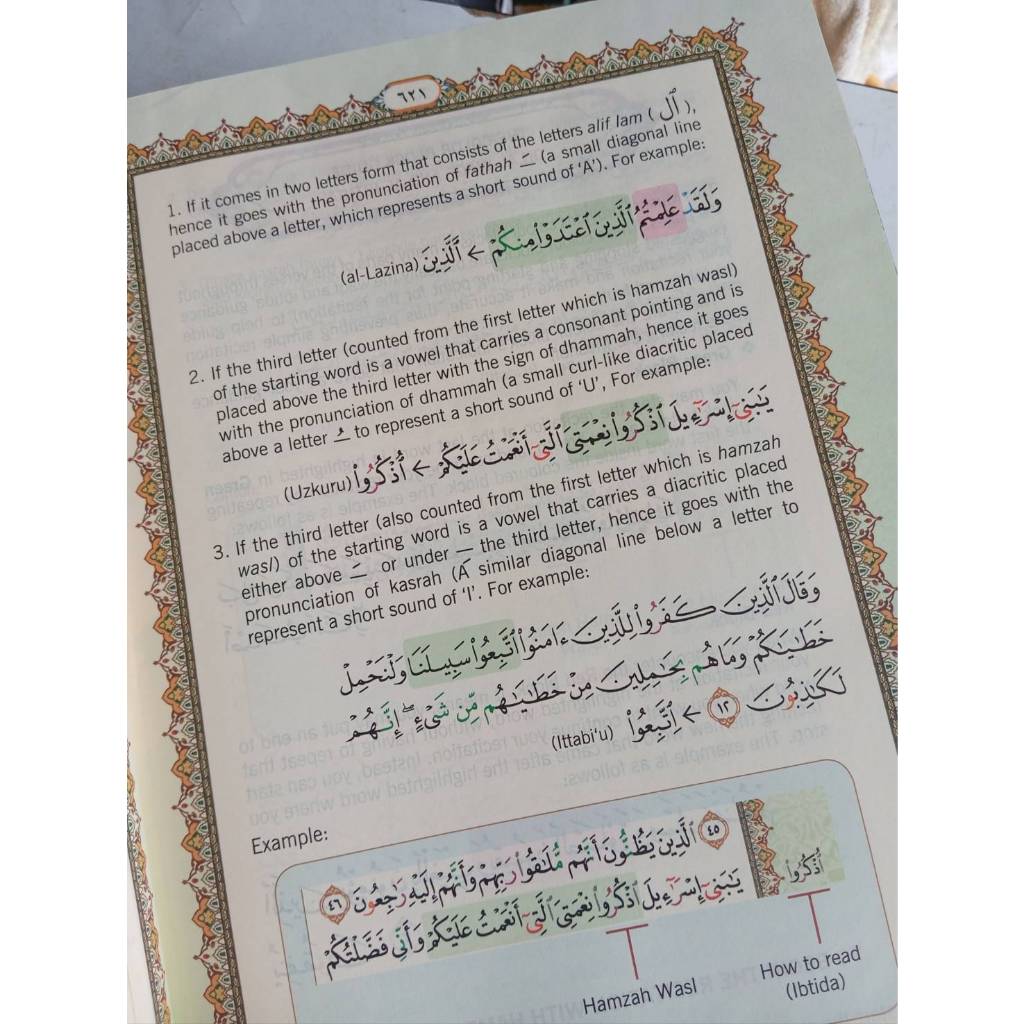 ٦٢١
1. If it comes in two letters form that consists of the letters alif lam ( اَلْ ),
hence it goes with the pronunciation of fathah ـَ (a small diagonal line
placed above a letter, which represents a short sound of ‘A’). For example:
وَلَقَدْ عَلِمْتُمُ ٱلَّذِينَ ٱعْتَدَوْا۟ مِنكُمْ ← اَلَّذِينَ (al-Lazina)
2. If the third letter (counted from the first letter which is hamzah wasl)
of the starting word is a vowel that carries a consonant pointing and is
placed above the third letter with the sign of dhammah, hence it goes
with the pronunciation of dhammah (a small curl-like diacritic placed
above a letter ـُ to represent a short sound of ‘U’, For example:
يَٰبَنِىٓ إِسْرَٰٓءِيلَ ٱذْكُرُوا۟ نِعْمَتِىَ ٱلَّتِىٓ أَنْعَمْتُ عَلَيْكُمْ ← اُذْكُرُوا۟ (Uzkuru)
3. If the third letter (also counted from the first letter which is hamzah
wasl) of the starting word is a vowel that carries a diacritic placed
either above ـَ or under ـِ the third letter, hence it goes with the
pronunciation of kasrah (A similar diagonal line below a letter to
represent a short sound of ‘I’. For example:
وَقَالَ ٱلَّذِينَ كَفَرُوا۟ لِلَّذِينَ ءَامَنُوا۟ ٱتَّبِعُوا۟ سَبِيلَنَا وَلْنَحْمِلْ
خَطَٰيَٰكُمْ وَمَا هُم بِحَٰمِلِينَ مِنْ خَطَٰيَٰهُم مِّن شَىْءٍ ۖ إِنَّهُمْ
لَكَٰذِبُونَ ١٢ ← اِتَّبِعُوا۟ (Ittabi‘u)
Example:
٤٥ ٱلَّذِينَ يَظُنُّونَ أَنَّهُم مُّلَٰقُوا۟ رَبِّهِمْ وَأَنَّهُمْ إِلَيْهِ رَٰجِعُونَ ٤٦
يَٰبَنِىٓ إِسْرَٰٓءِيلَ ٱذْكُرُوا۟ نِعْمَتِىَ ٱلَّتِىٓ أَنْعَمْتُ عَلَيْكُمْ وَأَنِّى فَضَّلْتُكُمْ
اُذْكُرُوا۟
Hamzah Wasl
How to read
(Ibtida)